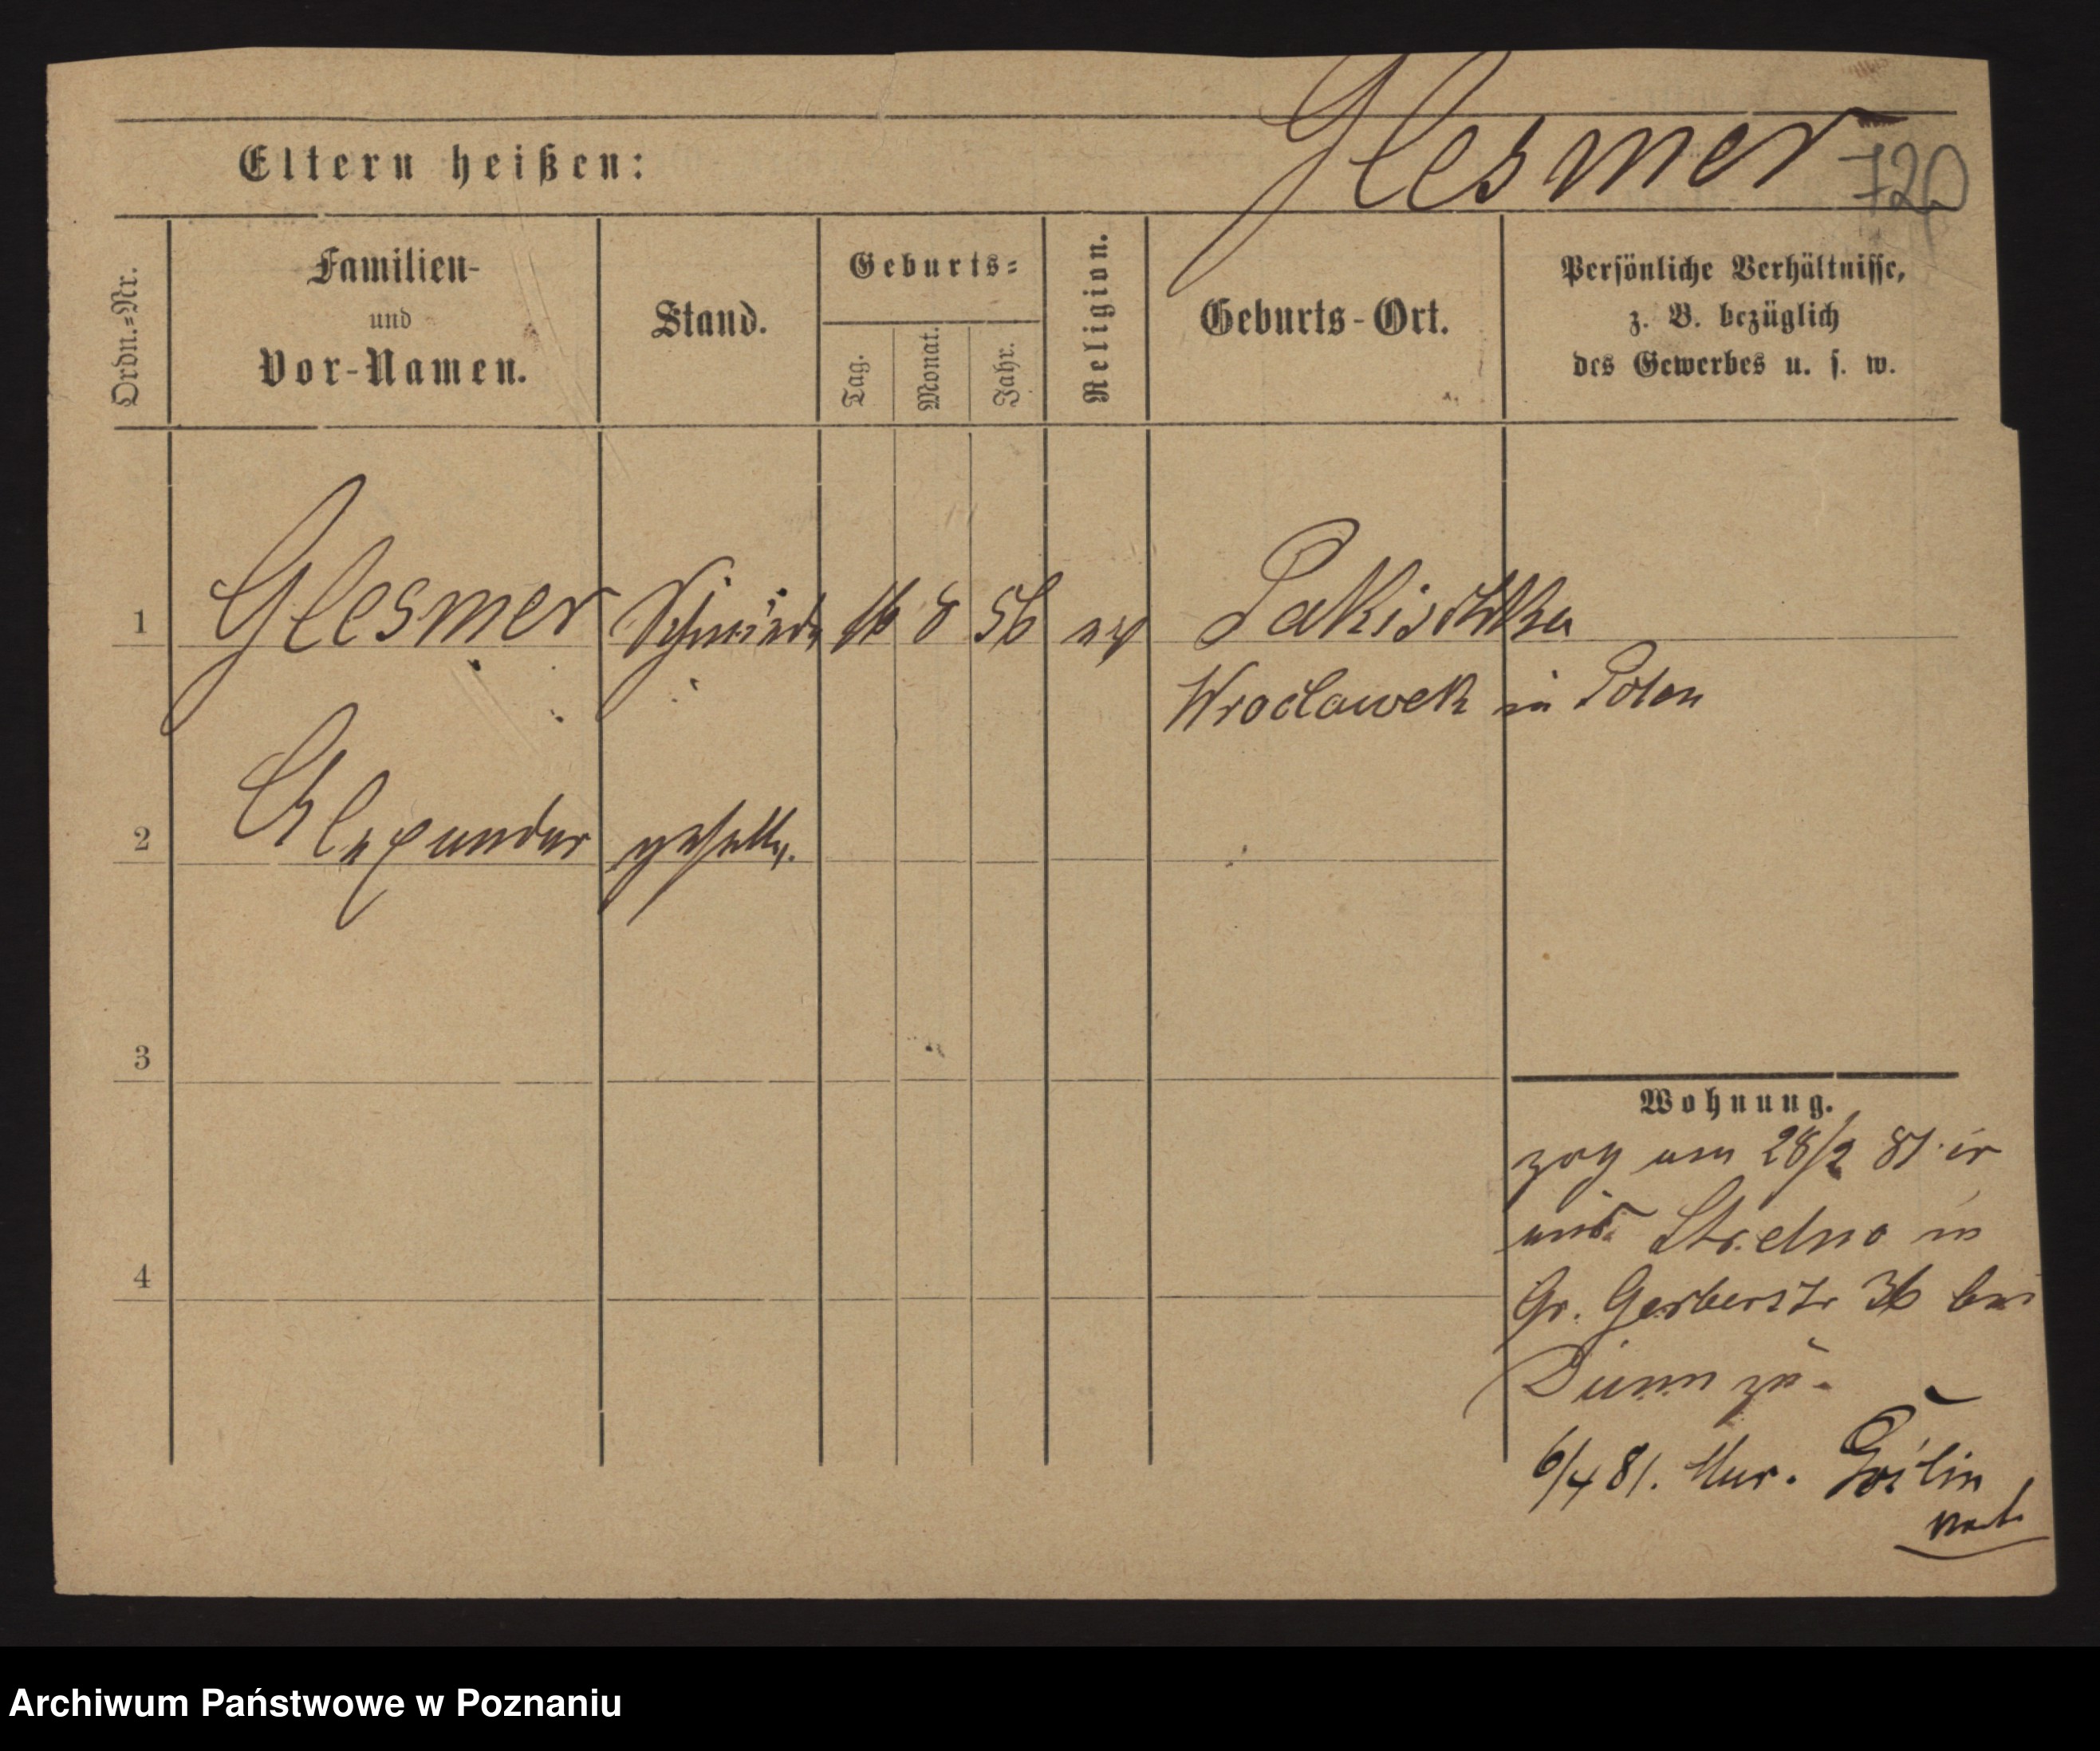 Glesmer
720
Eltern heißen:
Ordn.=Nr.
Familien-
und
Vor-Namen.
Stand.
Geburts=
Tag.
Monat.
Jahr.
Religion.
Geburts-Ort.
Persönliche Verhältnisse,
z. B. bezüglich
des Gewerbes u. s. w.
1 Glesmer Schmiede 16 8 56
Wroclawek in Polen
2 Alexander geselle.
3
4
Wohnung.
zog am 28/2 81
aus Strelno in
Gr. Gerberstr 36 bei
zu.
6/4 81. Mur. Goslin
Archiwum Państwowe w Poznaniu